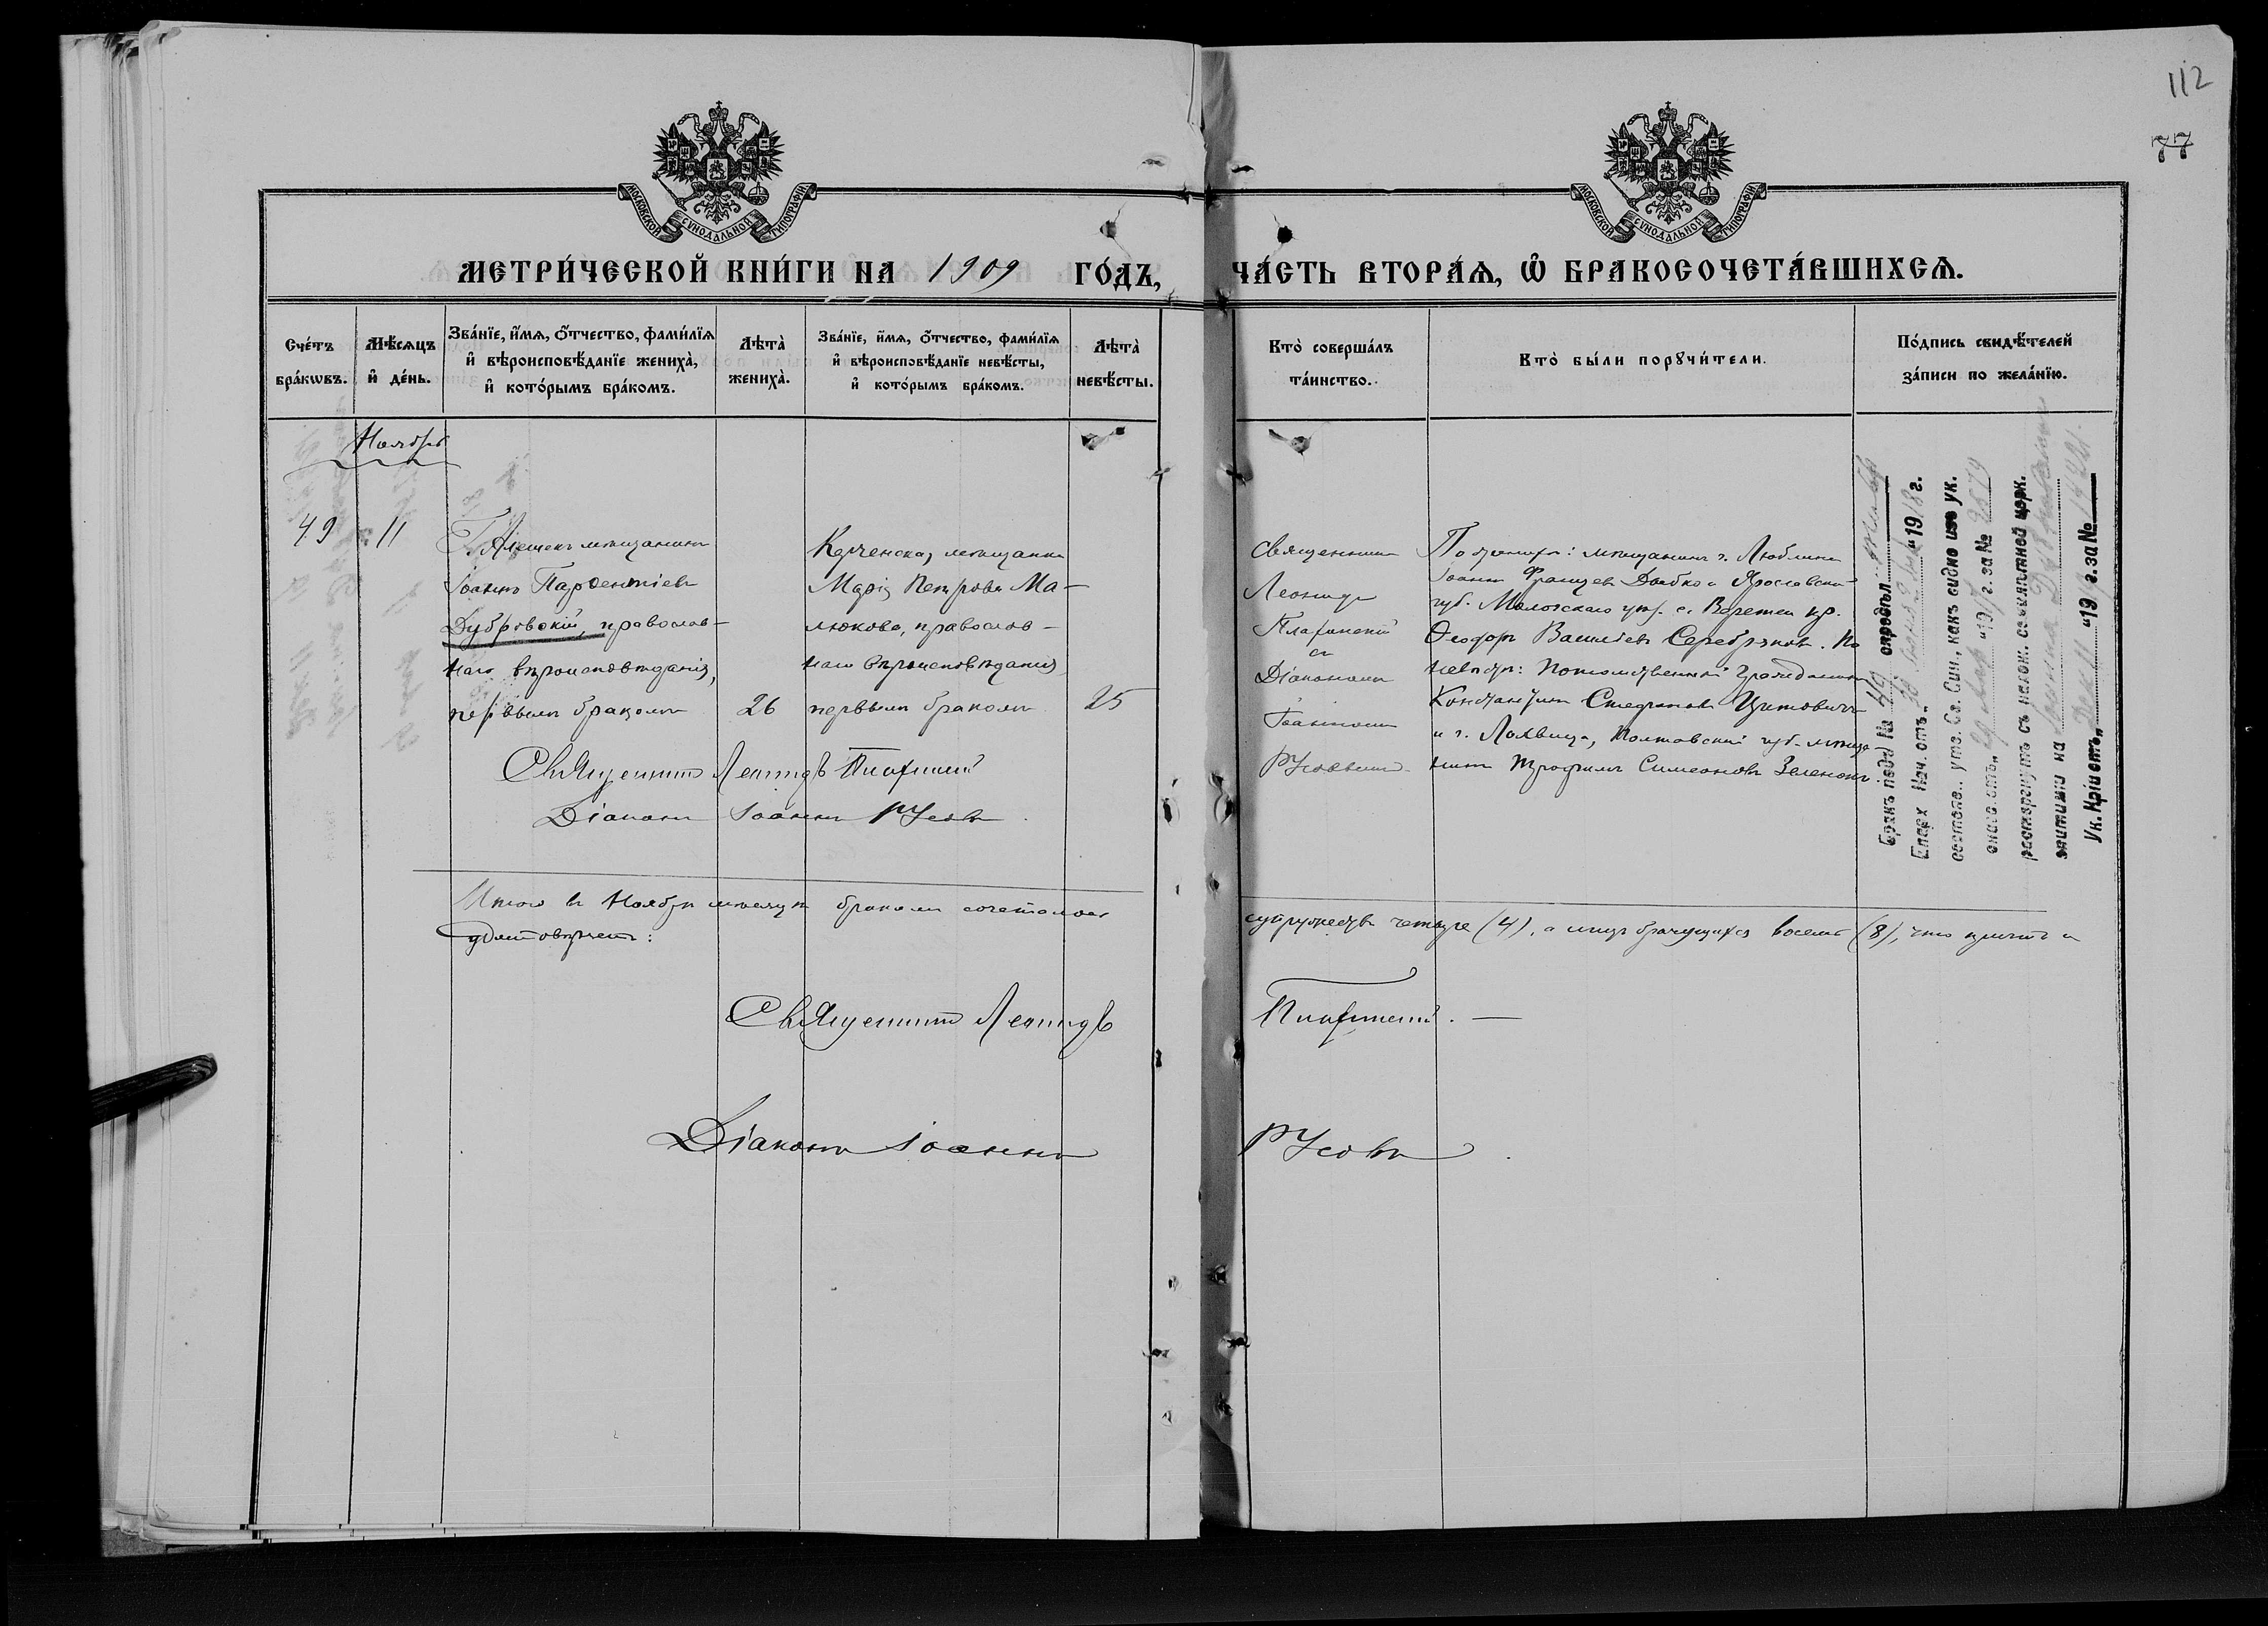 112
77
МОСКОВСКОЙ СѴНОДАЛЬНОЙ ТИПОГРАФІИ
МОСКОВСКОЙ СѴНОДАЛЬНОЙ ТИПОГРАФІИ
МЕТРИ́ЧЕСКОЙ КНИ́ГИ НА 1909 ГО́ДЪ, ЧА́СТЬ ВТОРА́Ѧ, Ѽ БРАКОСОЧЕТА́ВШИХСѦ.
Сче́тъ бра́кѡвъ.
Мѣ́сѧцъ и҆ де́нь.
Зва́нїе, и҆́мѧ, ѻ҆́тчество, фами́лїѧ
и҆ вѣроисповѣ́данїе жениха̀,
и҆ кото́рымъ бра́комъ.
Лѣта̀ жениха̀.
Зва́нїе, и҆́мѧ, ѻ҆́тчество, фами́лїѧ
и҆ вѣроисповѣ́данїе невѣ́сты,
и҆ кото́рымъ бра́комъ.
Лѣта̀ невѣ́сты.
Кто̀ соверша́лъ та́инство.
Кто̀ бы́ли порꙋчи́тели.
По́дпись свидѣ́телей
за́писи по жела́нїю.
Ноябрь
49
11
Г. Алешекъ мѣщанинъ
Іоаннъ Парѳентіевъ
Дубровскій, православ-
наго вѣроисповѣданія,
первымъ бракомъ
26
Керченская мѣщанка
Марія Петрова Ма-
люкова, православ-
наго вѣроисповѣданія
первымъ бракомъ
25
Священникъ
Леонидъ
съ
Діакономъ
Іоанномъ
Русовымъ
По женихѣ: мѣщанинъ г. Люблина
Іоаннъ Францевъ Дыбко и Ярославской
губ. Моложскаго уѣз. с. Веретеи кр.
Ѳеодоръ Васильевъ Серебряковъ. По
невѣстѣ: Потомственный Гражданинъ
Константинъ Стефановъ Цитовичъ
и г. Лохвицы, Полтавской губ. мѣща
нинъ Трофимъ Симеоновъ Зеленскій
Бракъ подъ № 49 опредѣл.
Епарх Нач. отъ „ “ 1918 г.
состояв. утв. Св. Син., какъ видно изъ ук.
онаго отъ „ “ 191 г. за №
расторгнутъ съ
эпитиміи на
Ук. Кр. отъ „ “ 191 г. за №
Священникъ Леонидъ
Діаконъ Іоаннъ Русовъ
Итого въ Ноябрѣ мѣсяцѣ бракомъ сочеталось супружествъ четыре (4), а лицъ брачущихся восемь (8), что причтъ и
удостовѣряетъ:
Священникъ Леонидъ
Діаконъ Іоаннъ Русовъ